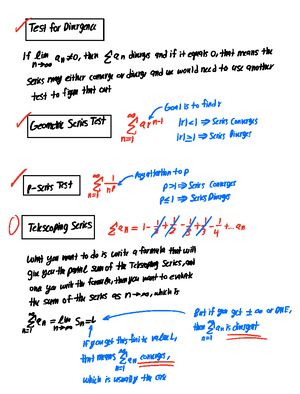 Test for Divergence
If lim n→∞ an ≠ 0, then Σan diverges and if it equals 0, that means the
series may either converge or diverge and we would need to use another
test to figure that out
Geometric Series Test
∞ Σ n=1 ar^n-1
Goal is to find r
|r|<1 ⇒ Series Converges
|r|≥1 ⇒ Series Diverges
p-series Test
∞ Σ n=1 1/n^p
Pay attention to p
p>1 ⇒ Series Converges
p≤1 ⇒ Series Diverges
Telescoping Series
Σan = 1 - 1/2 + 1/2 - 1/3 + 1/3 - 1/4 + ... an
What you want to do is write a formula that will
give you the partial sum of the Telescoping Series, and
once you write the formula, then you want to evaluate
the sum of the series as n→∞, which is
∞ Σ n=1 an = lim n→∞ Sn = L
But if you get ± ∞ or DNE,
then ∞ Σ n=1 an is divergent
If you get this finite value L,
that means ∞ Σ n=1 an converges,
which is usually the case